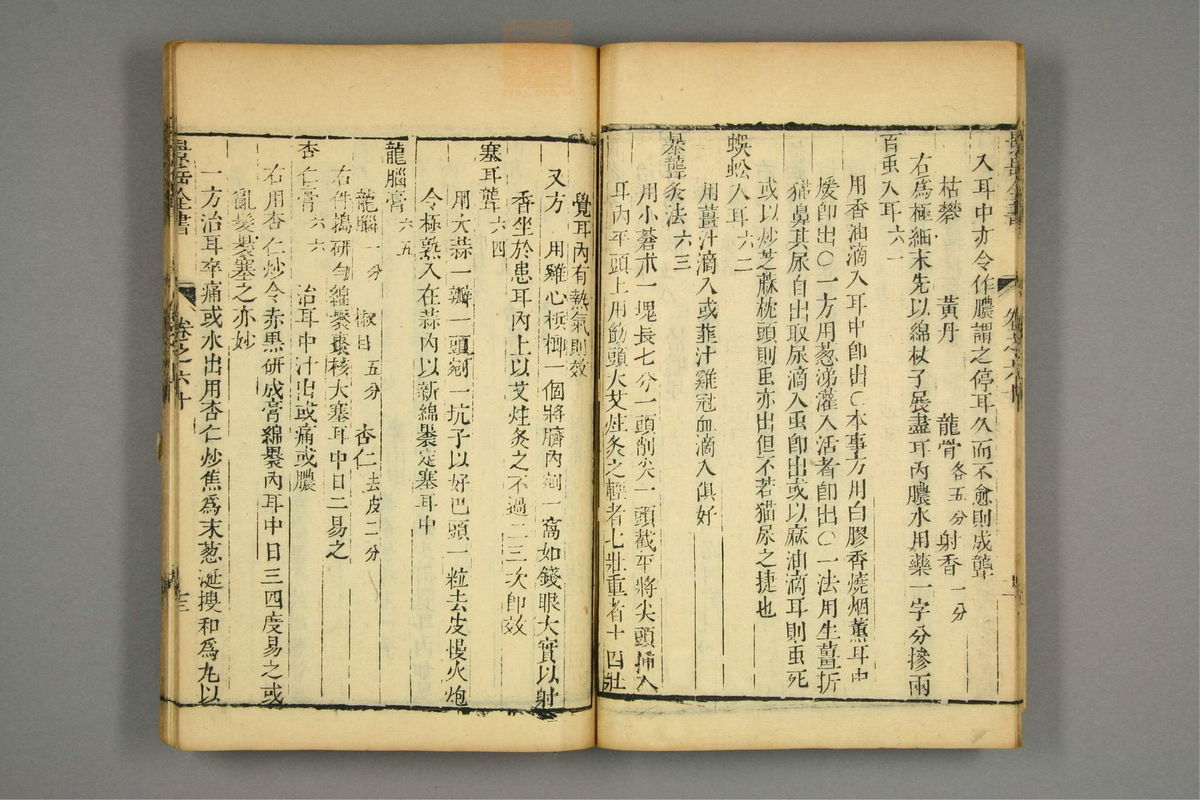 景岳全書 卷之六十
入耳中亦令作膿謂之停耳久而不愈則成聾
枯礬 黃丹 龍骨各五分 射香一分
右爲極細末先以綿杖子展盡耳內膿水用藥一字分摻兩
百䖝入耳六一
用香油滴入耳中卽出〇本事方用白膠香燒烟薰耳中
煖卽出〇一方用葱涕灌入活者卽出〇一法用生薑折
猫鼻其尿自出取尿滴入䖝卽出或以麻油滴耳則䖝死
或以炒芝蔴枕頭則䖝亦出但不若猫尿之捷也
蜈蚣入耳六二
用薑汁滴入或韮汁雞冠血滴入俱好
暴聾灸法六三
用小蒼朮一塊長七分一頭削尖一頭截平將尖頭揷入
耳內平頭上用筯頭大艾炷灸之輕者七壯重者十四壯
覺耳內有熱氣則效
又方 用雞心檳榔一個將臍內剜一窩如錢眼大實以射
香坐於患耳內上以艾炷灸之不過二三次卽效
塞耳聾六四
用大蒜一瓣一頭剜一坑子以好巴頭一粒去皮慢火炮
令極熟入在蒜內以新綿裹定塞耳中
龍腦膏六五
龍腦一分 椒目五分 杏仁去皮二分
右件搗研勻綿裹棗核大塞耳中日二易之
杏仁膏六六 治耳中汁出或痛或膿
右用杏仁炒令赤黑研成膏綿裹內耳中日三四度易之或
亂髮裹塞之亦妙
一方治耳卒痛或水出用杏仁炒焦爲末葱涎搜和爲丸以
景岳全書 卷之六十 十三